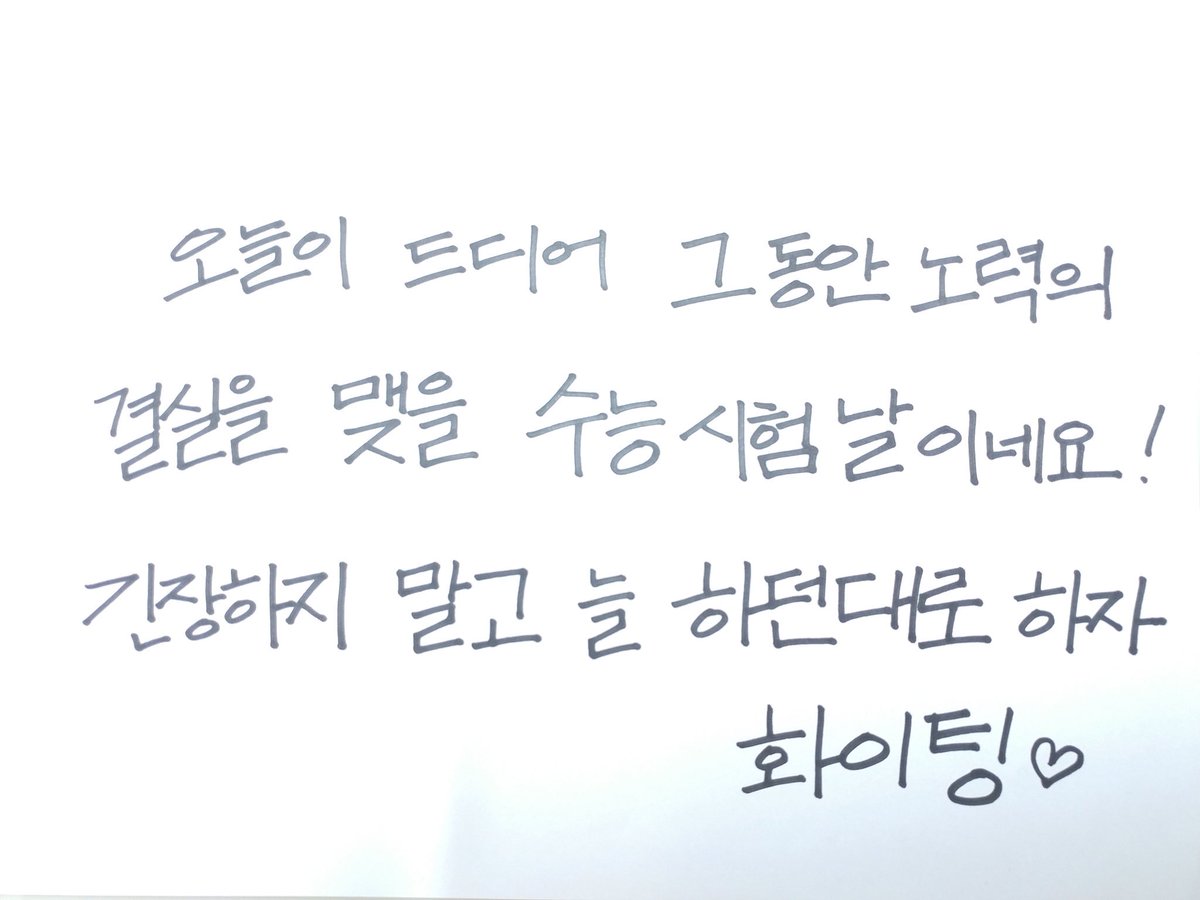 오늘이 드디어 그동안 노력의
결실을 맺을 수능시험날이네요!
긴장하지 말고 늘 하던대로 하자
화이팅♡